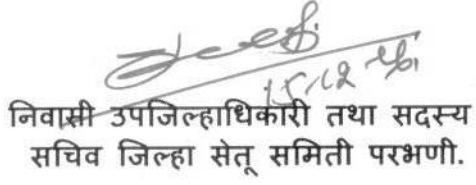 निवासी उपजिल्हाधिकारी तथा सदस्य
सचिव जिल्हा सेतू समिती परभणी.